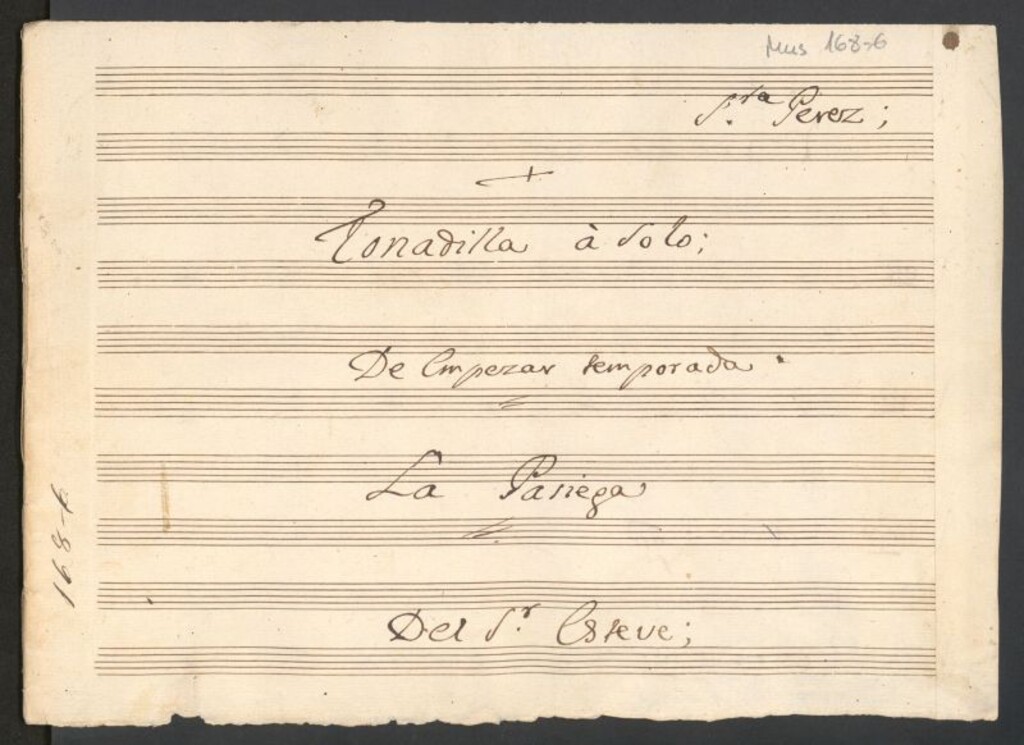 Mus 168-6
S.ra Perez;
Tonadilla à Solo;
De Empezar temporada.
La Pasiega
Del S.r Esteve;
168-6